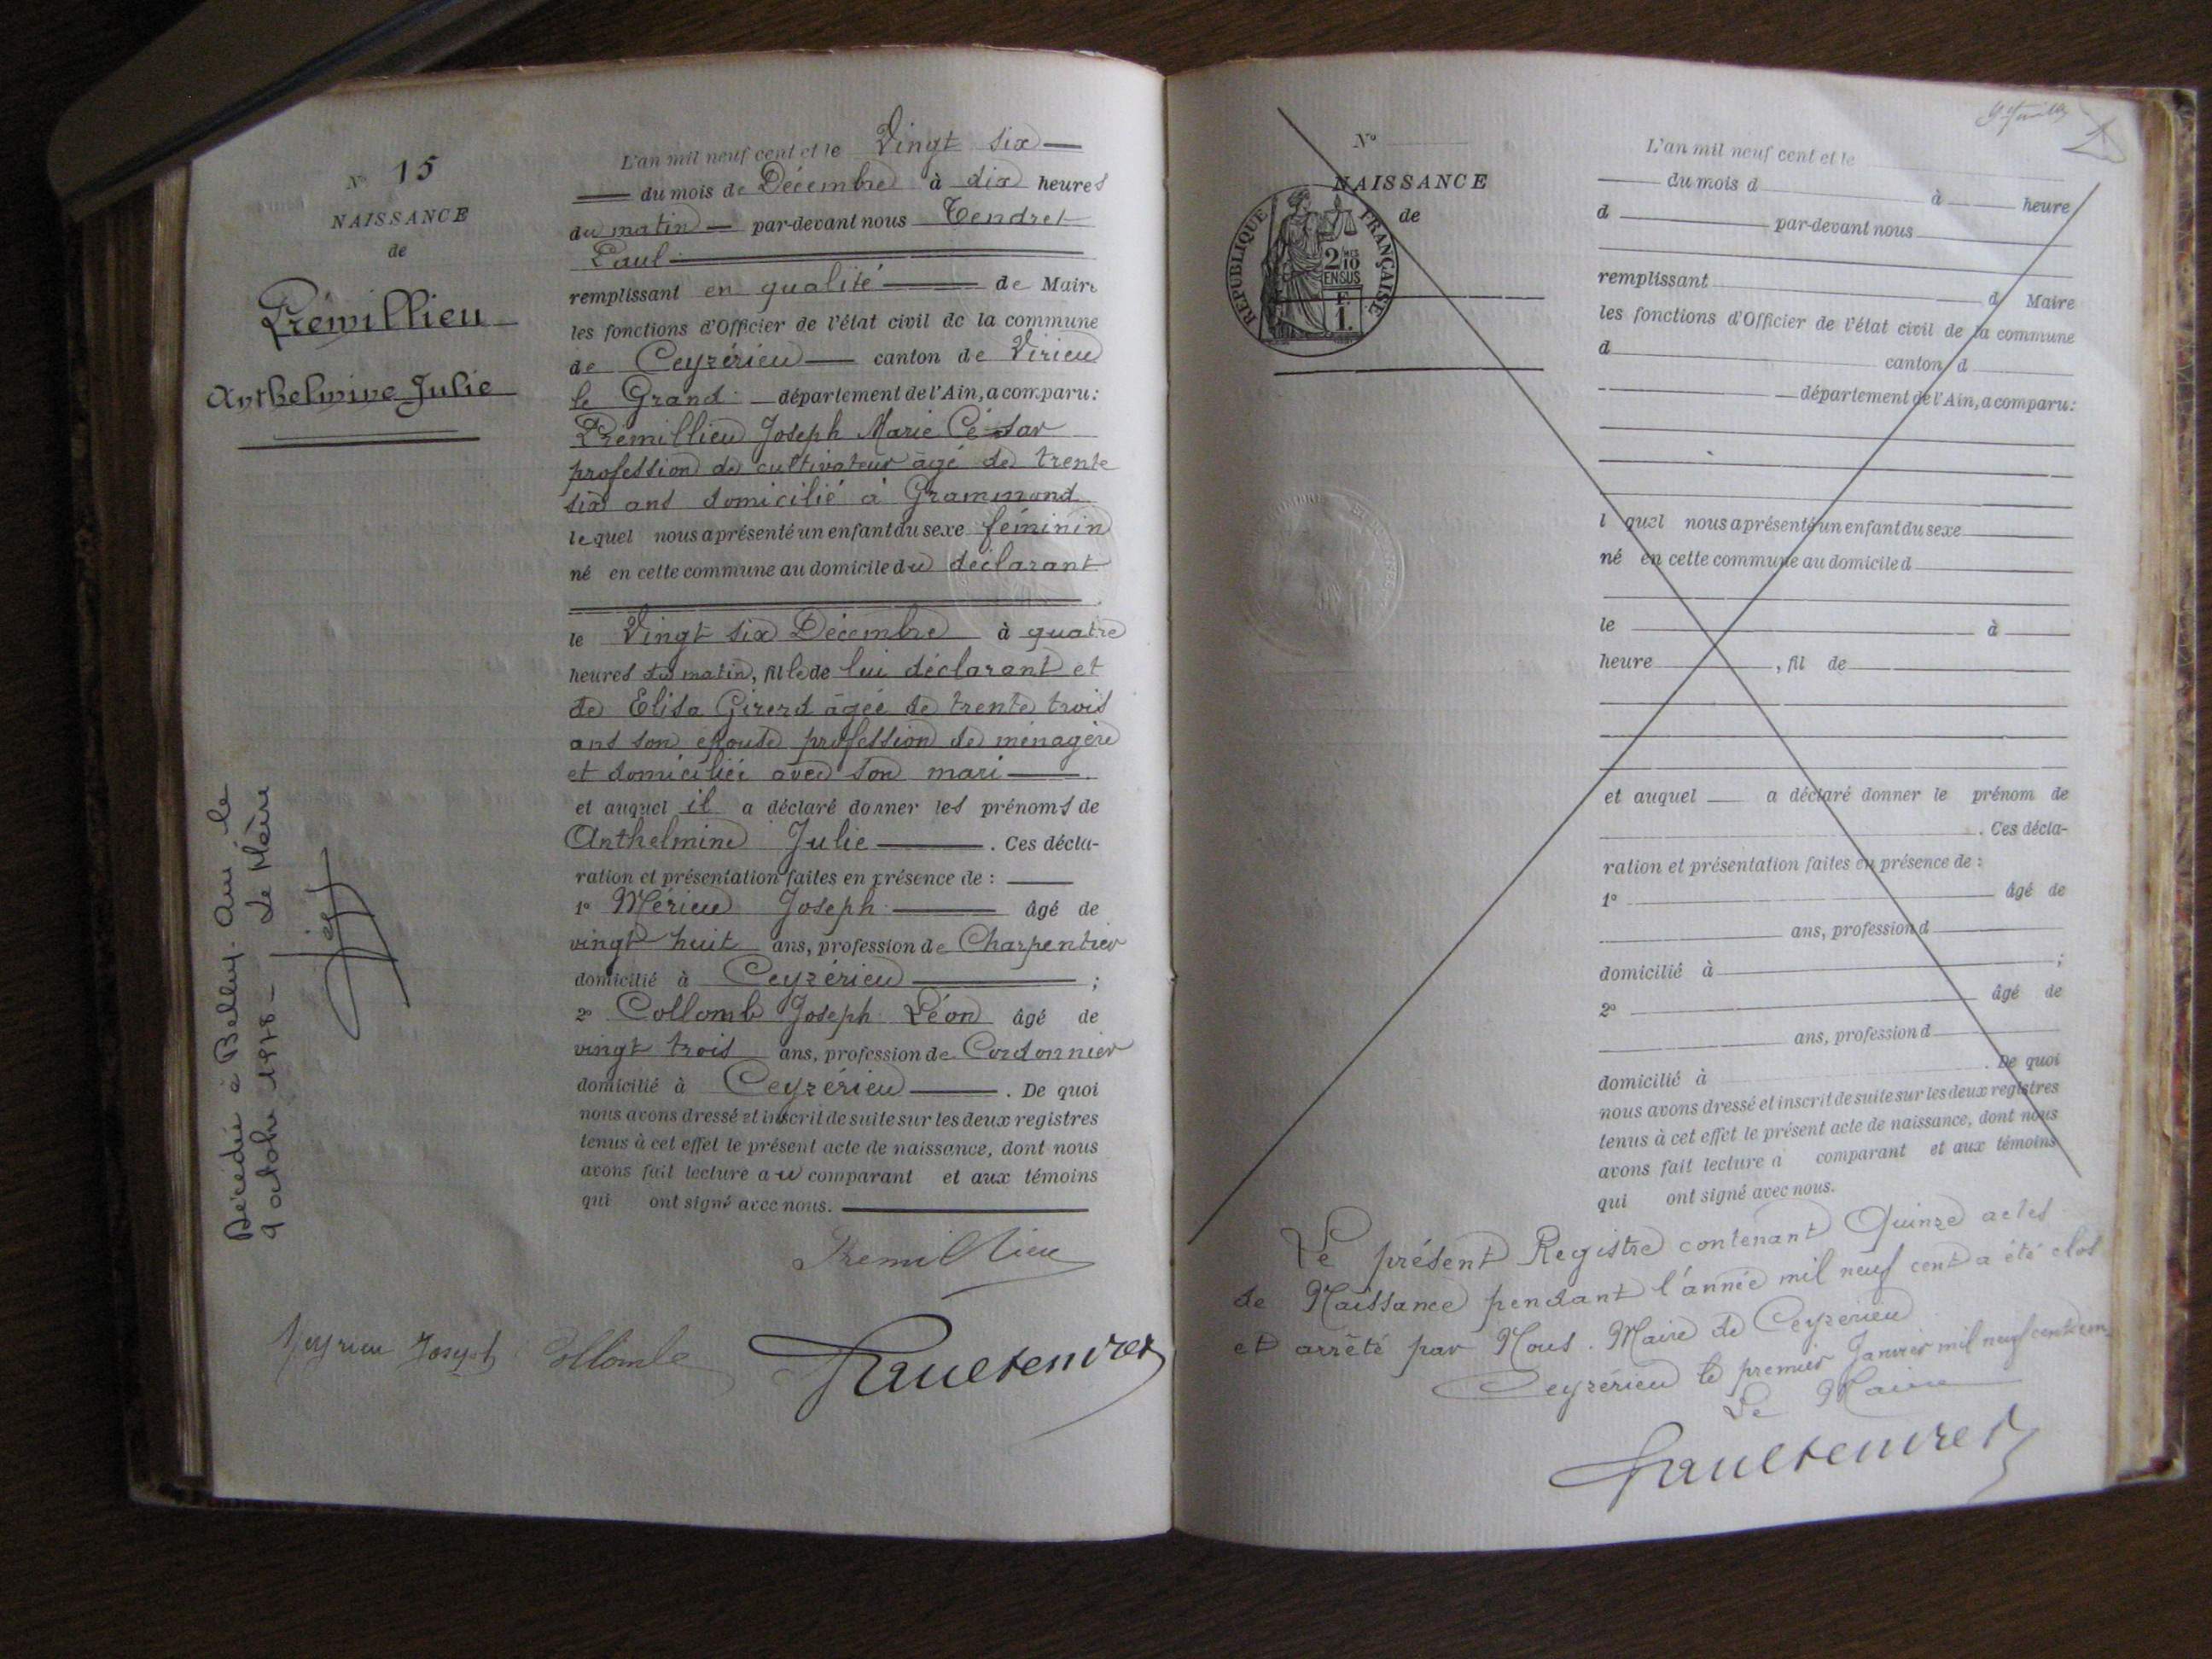 N° 15
NAISSANCE
de
Prémillieu
Anthelmine Julie
Décédée à Belley. Ain le
9 octobre 1978 - Le Maire
L'an mil neuf cent et le Vingt six
du mois de Décembre à dix heures
du matin par-devant nous Tendret
Paul
remplissant en qualité de Maire
les fonctions d'Officier de l'état civil de la commune
de Ceyzérieu canton de Virieu
le Grand département de l'Ain, a comparu:
Prémillieu Joseph Marie César
profession de cultivateur âgé de trente
six ans domicilié à Grammond
lequel nous a présenté un enfant du sexe féminin
né en cette commune au domicile du déclarant
le Vingt six Décembre à quatre
heures du matin, fille de lui déclarant et
de Elisa Girerd âgée de trente trois
ans son épouse profession de ménagère
et domiciliée avec son mari
et auquel il a déclaré donner les prénoms de
Anthelmine Julie . Ces décla-
ration et présentation faites en présence de :
1° Mérieu Joseph âgé de
vingt huit ans, profession de Charpentier
domicilié à Ceyzérieu ;
2° Collomb Joseph Léon âgé de
vingt trois ans, profession de Cordonnier
domicilié à Ceyzérieu . De quoi
nous avons dressé et inscrit de suite sur les deux registres
tenus à cet effet le présent acte de naissance, dont nous
avons fait lecture au comparant et aux témoins
qui ont signé avec nous.
Premillieu
Joseph Collombe
Paul Tendret
N°
NAISSANCE
de
REPUBLIQUE FRANÇAISE
2/10
EN SUS
F.
1.
L'an mil neuf cent et le
du mois d à heure
d par-devant nous
remplissant d Maire
les fonctions d'Officier de l'état civil de la commune
d canton d
département de l'Ain, a comparu:
l quel nous a présenté un enfant du sexe
né en cette commune au domicile d
le à
heure , fil de
et auquel a déclaré donner le prénom de
. Ces décla-
ration et présentation faites en présence de :
1° âgé de
ans, profession d
domicilié à ;
2° âgé de
ans, profession d
domicilié à . De quoi
nous avons dressé et inscrit de suite sur les deux registres
tenus à cet effet le présent acte de naissance, dont nous
avons fait lecture a comparant et aux témoins
qui ont signé avec nous.
Le présent Registre contenant Quinze actes
de Naissance pendant l'année mil neuf cent a été clos
et arrêté par Nous. Maire de Ceyzérieu
Ceyzérieu le premier Janvier mil neuf cent un
Le Maire
Paul Tendret